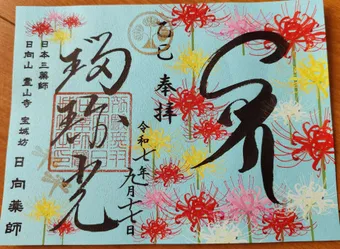 乙巳
奉拝
令和七年
九月
瑠璃光
日本三薬師
日向山 霊山寺 宝城坊 日向薬師